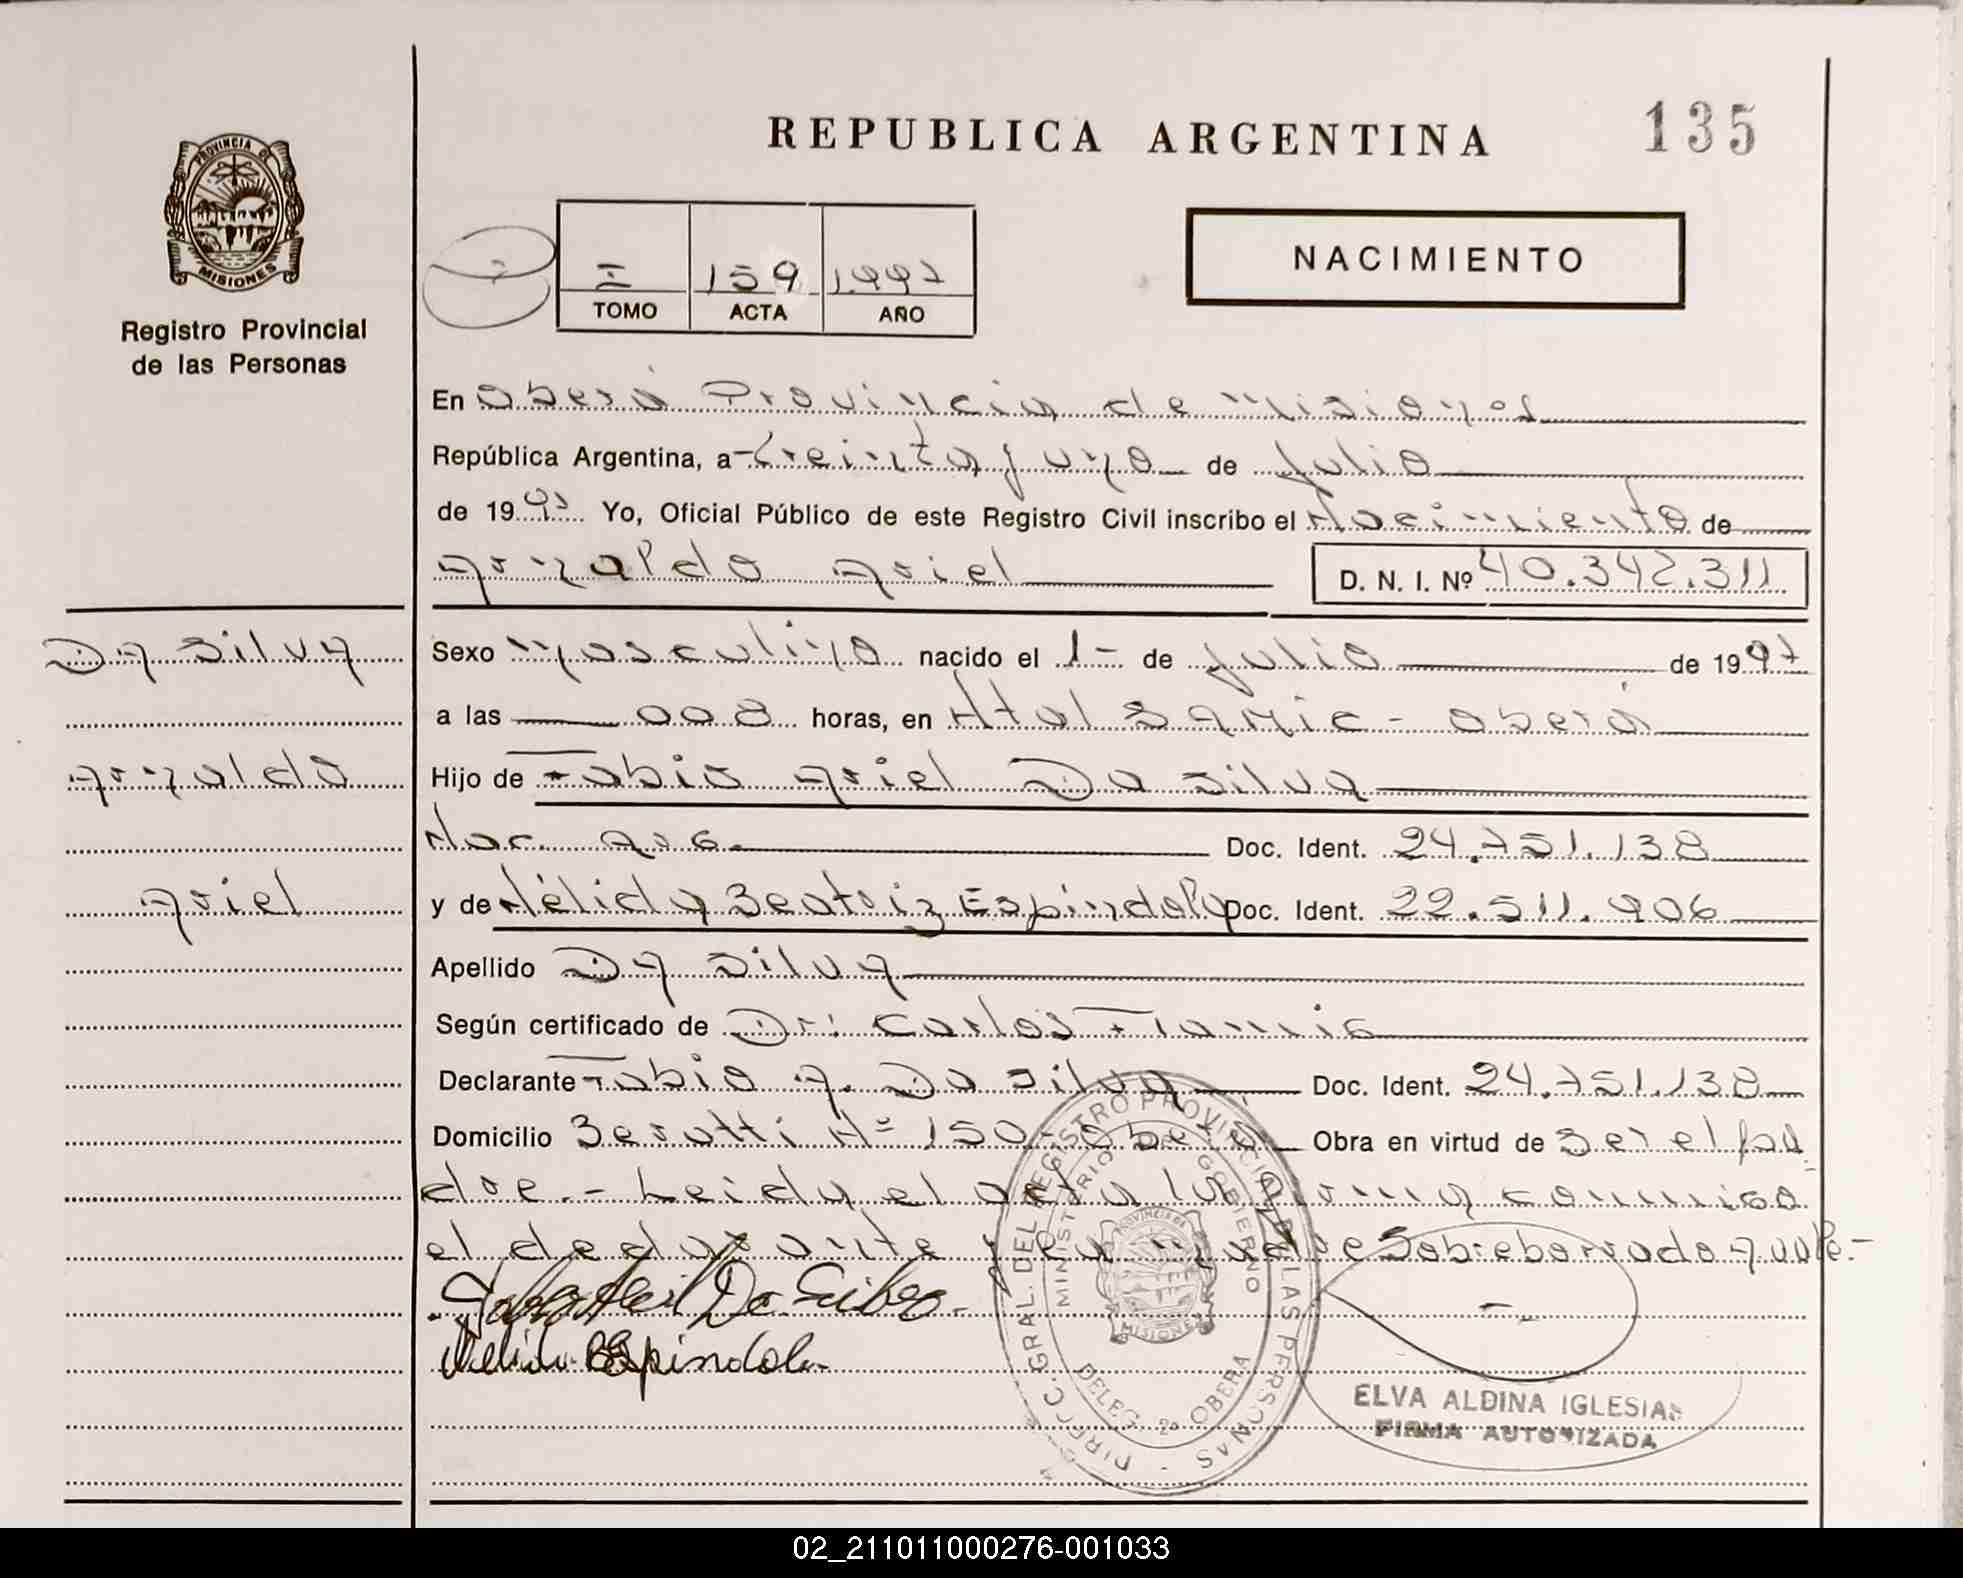 REPUBLICA ARGENTINA
135
PROVINCIA DE
MISIONES
Registro Provincial
de las Personas
I 159 1.997
TOMO ACTA AÑO
NACIMIENTO
En Oberá Provincia de Misiones
República Argentina, a treinta y uno de Julio
de 1997 Yo, Oficial Público de este Registro Civil inscribo el Nacimiento de
Arnaldo Ariel D. N. I. Nº 40.342.311
Da Silva
Arnaldo
Ariel
Sexo Masculino nacido el 1- de Julio de 1997
a las 008 horas, en Htal SAMIC - Oberá
Hijo de Fabio Ariel Da Silva
Nac. Arg. Doc. Ident. 24.751.138
y de Nélida Beatriz Espíndola Doc. Ident. 22.511.906
Apellido Da Silva
Según certificado de Dr: Carlos
Declarante Fabio A. Da Silva Doc. Ident. 24.751.138
Domicilio Berutti Nº 150 - Oberá Obra en virtud de Ser el pa
dre.- Leida el acta la firma conmigo
el declarante y la madre Sobreborrado A vale.-
Da Silva
Nelida B Espindola
DIRECC. GRAL. DEL REGISTRO PROVINCIAL DE LAS PERSONAS
MINISTERIO DE GOBIERNO
PROVINCIA DE
MISIONES
DELEG. 2ª OBERA
ELVA ALDINA IGLESIAS
FIRMA AUTORIZADA
02_211011000276-001033